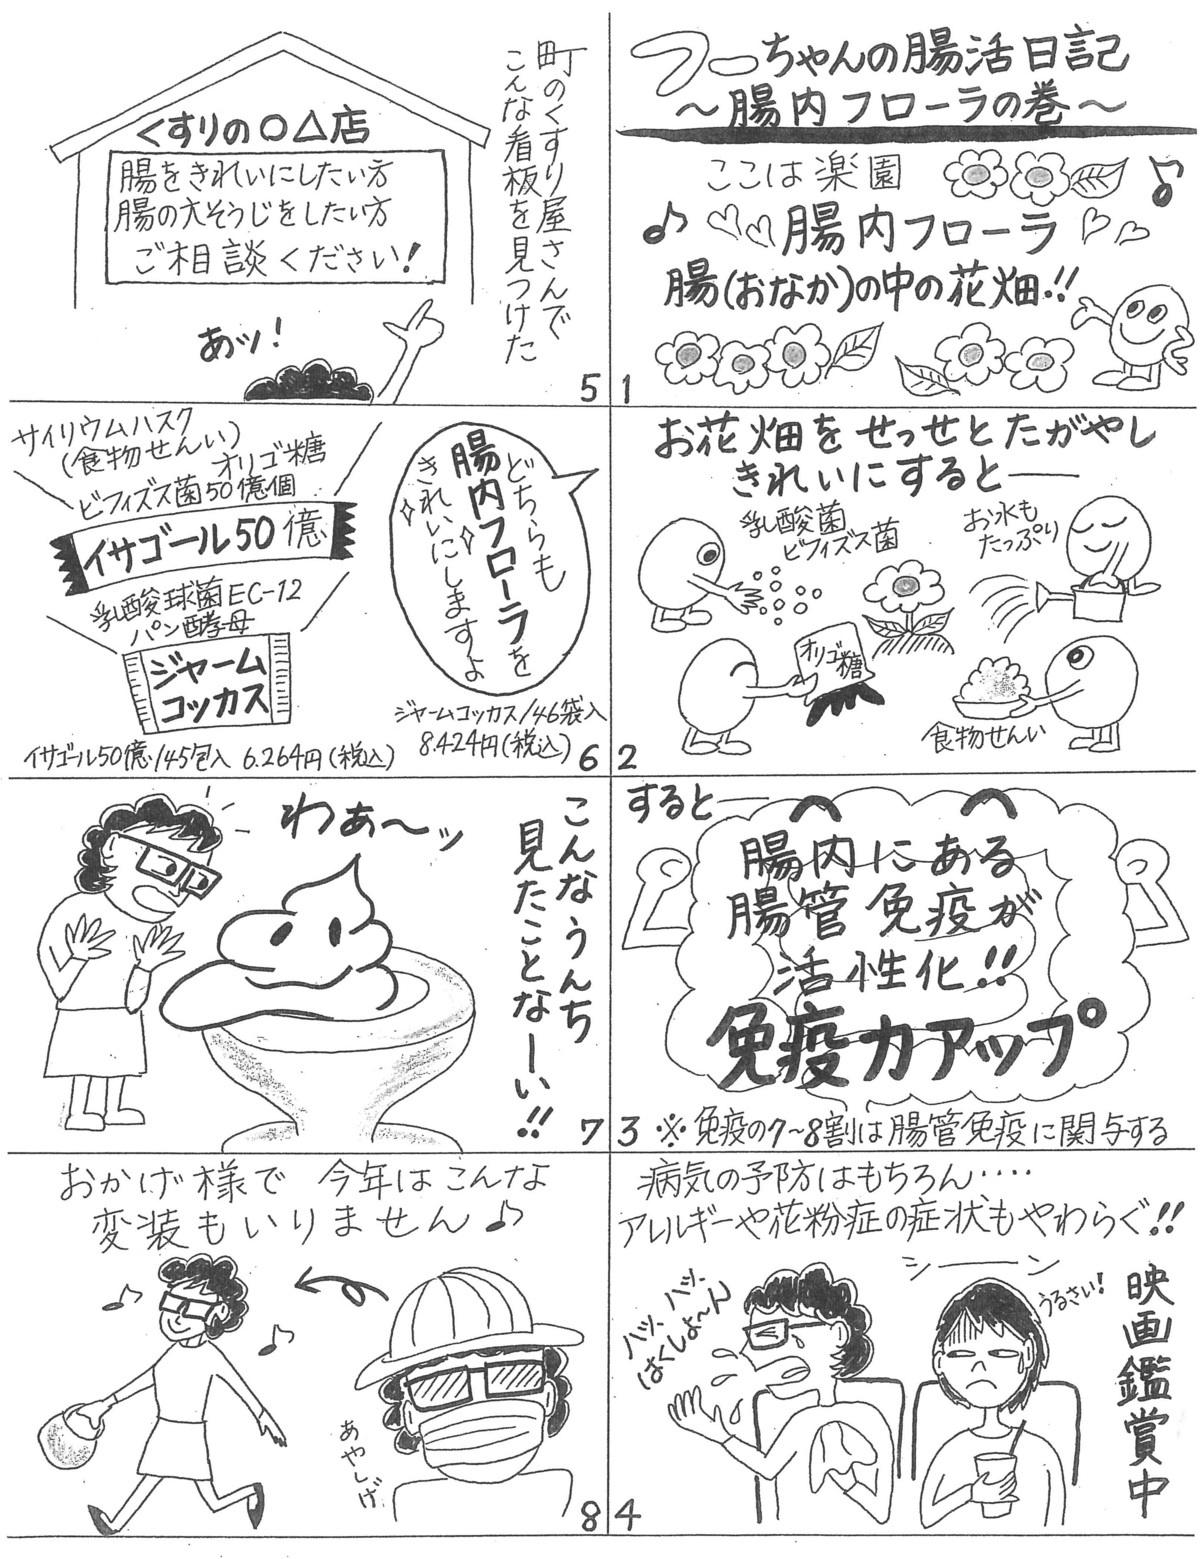 つーちゃんの腸活日記
～腸内フローラの巻～
ここは楽園
腸内フローラ
腸(おなか)の中の花畑!!
1
お花畑をせっせとたがやし
きれいにすると――
乳酸菌
ビフィズス菌
お水も
たっぷり
オリゴ糖
食物せんい
2
すると―
腸内にある
腸管免疫が
活性化!!
免疫力アップ
3
※免疫の7～8割は腸管免疫に関与する
病気の予防はもちろん・・・・・
アレルギーや花粉症の症状もやわらぐ!!
シーーン
映画鑑賞中
うるさい!
ハッ、ハッ、ハッ、
はくしょ～ん
4
町のくすり屋さんで
こんな看板を見つけた
くすりの○△店
腸をきれいにしたい方
腸の大そうじをしたい方
ご相談ください!
あッ!
5
サイリウムハスク
(食物せんい)
オリゴ糖
ビフィズス菌50億個
イサゴール50億
乳酸球菌EC-12
パン酵母
ジャーム
コッカス
どちらも
腸内フローラを
きれいにしますよ
ジャームコッカス/46袋入
8.424円(税込)
イサゴール50億/45包入 6.264円(税込)
6
わぁ～ッ
こんなうんち
見たことなーい!!
7
おかげ様で 今年はこんな
変装もいりません♪
あやしげ
8